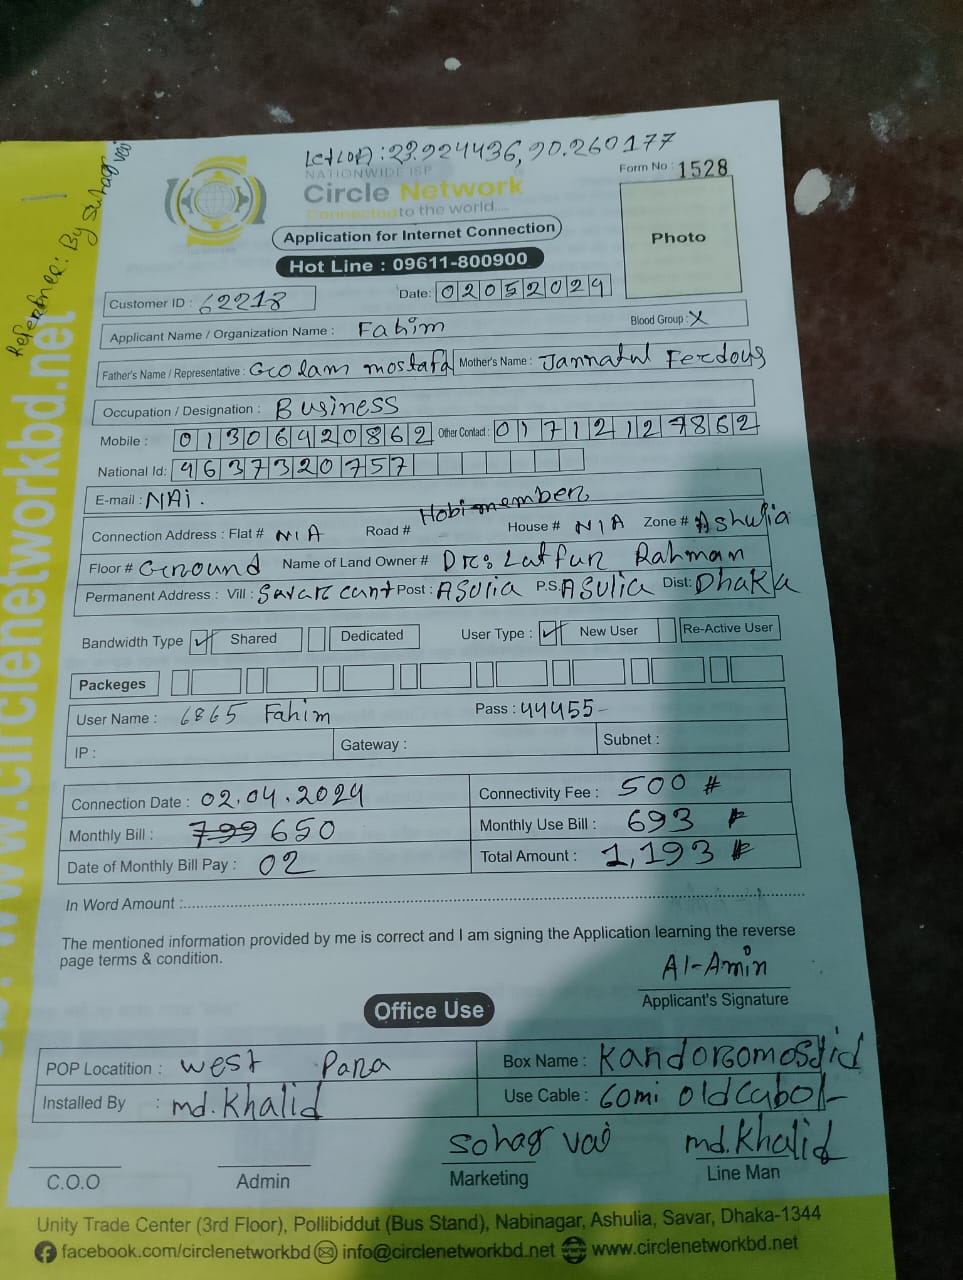 Let Lon: 23.924436, 90.260177
NATIONWIDE ISP
Form No : 1528
Circle Network
Connected to the world....
Application for Internet Connection
Photo
Hot Line : 09611-800900
Reference: By Suhag vai
www.circlenetworkbd.net
Customer ID : 62218
Date: 02052024
Applicant Name / Organization Name : Fahim
Blood Group : X
Father's Name / Representative : Golam mostafa Mother's Name : Jannatul Ferdous
Occupation / Designation : Business
Mobile : 01306920862 Other Contact : 01712127862
National Id: 4637320757
E-mail : NAi.
Connection Address : Flat # N/A Road # Hobi member House # N/A Zone # Ashulia
Floor # Ground Name of Land Owner # Dr: Latfur Rahman
Permanent Address : Vill : Savar cant Post : ASulia P.S. ASulia Dist: Dhaka
Bandwidth Type ✓ Shared Dedicated User Type : ✓ New User Re-Active User
Packeges
User Name : 6865 Fahim Pass : 44455-
IP : Gateway : Subnet :
Connection Date : 02.04.2024 Connectivity Fee : 500 #
Monthly Bill : 799 650 Monthly Use Bill : 693 #
Date of Monthly Bill Pay : 02 Total Amount : 1,193 #
In Word Amount :
The mentioned information provided by me is correct and I am signing the Application learning the reverse
page terms & condition.
Al-Amin
Applicant's Signature
Office Use
POP Locatition : west Para Box Name : Kandorgomosjid
Installed By : md. Khalid Use Cable : 60mi old Cabol-
Sohag vai md. Khalid
C.O.O Admin Marketing Line Man
Unity Trade Center (3rd Floor), Pollibiddut (Bus Stand), Nabinagar, Ashulia, Savar, Dhaka-1344
facebook.com/circlenetworkbd info@circlenetworkbd.net www.circlenetworkbd.net